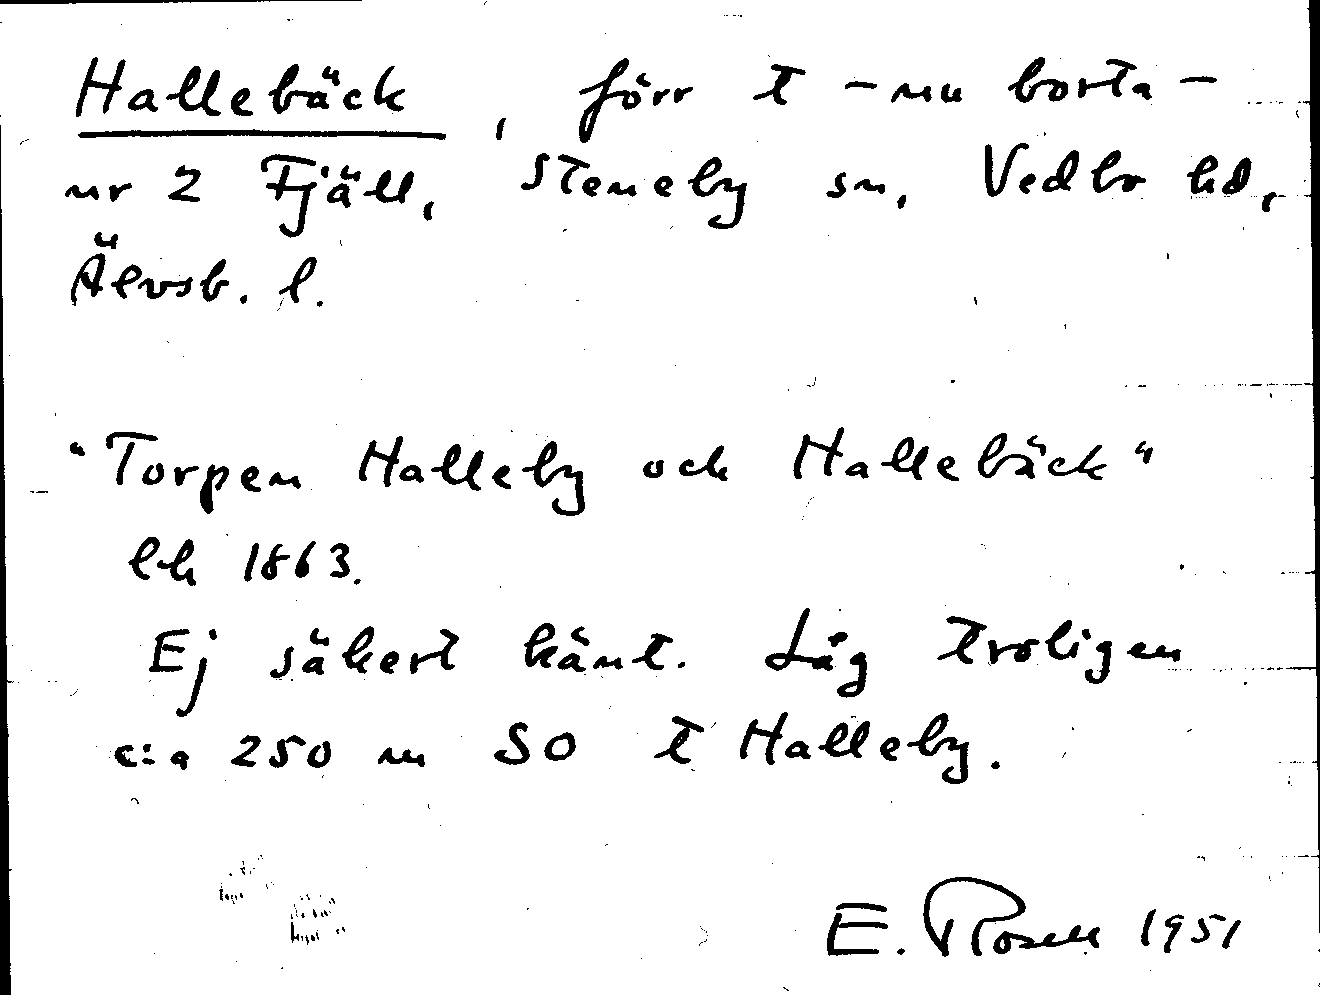 Hallebäck, förr t - nu borta -
nr 2 Fjäll, Steneby sn, Vedbo hd,
Älvsb. l.
"Torpen Halleby och Hallebäck"
lh 1863.
Ej säkert känt. Låg troligen
c:a 250 m SO t Halleby.
E. Rosell 1951